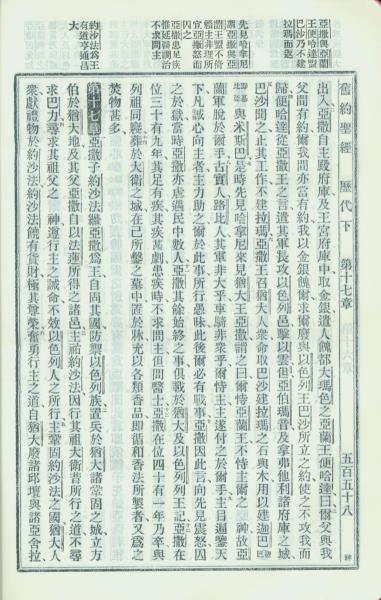 舊約聖經 歷代下 第十七章 五百五十八
亞撒與亞蘭
王便哈達盟
巴沙乃不建
拉瑪而返
出入亞撒自主殿府庫及王宮府庫中取金銀遣人餽都大瑪色之亞蘭王便哈達曰爾父與我
父間有約爾我間亦當有約我以金銀餽爾求爾廢與以色列王巴沙所立之約使之不攻我而
歸便哈達從亞撒王之言遣其軍長攻以色列邑擊以雲但亞伯瑪音及拿弗他利諸府庫之城
巴沙聞之止其工作不建拉瑪亞撒王召猶大人衆命取巴沙建拉瑪之石與木用以建迦巴
先見哈拿尼
與米斯巴是時先見哈拿尼來見猶大王亞撒謂之曰爾恃亞蘭王不恃主爾之神故亞
蘭軍脫於爾手古實人路比人其軍非大乎車騎非衆乎爾恃主主遂付之於爾手主目遍鑒天
下凡誠心向主者主力助之爾於此事所行愚昧此後爾必有戰事亞撒因此言向先見震怒囚
之於獄當時亞撒亦虐遇民中數人亞撒其餘始終之事俱載於猶大及以色列列王記亞撒在
亞撒患足疾
惟延醫調治
不求問主
位三十有九年其足有疾其疾甚劇患疾時不求問主但問醫士亞撒在位四十有一年乃卒與
列祖同寢葬於大衛之城在己所鑿之墓中置於牀充以各類香品即循和香法所製者又爲之
焚物甚多
約沙法爲王
有道亨通昌
大
第十七章 亞撒子約沙法繼亞撒爲王自固其國防禦以色列族置兵於猶大諸鞏固之城立方
伯於猶大地及其父亞撒自以法蓮所得之諸邑主祐約沙法因行其祖大衛昔所行之道不尋
求巴力尋求其祖父之神遵行主之誡命不效以色列人之所行主鞏固約沙法之國猶大人
衆獻禮物於約沙法約沙法饒有貨財極其尊榮奮勇行主之道自猶大廢諸邱壇與諸亞舍拉